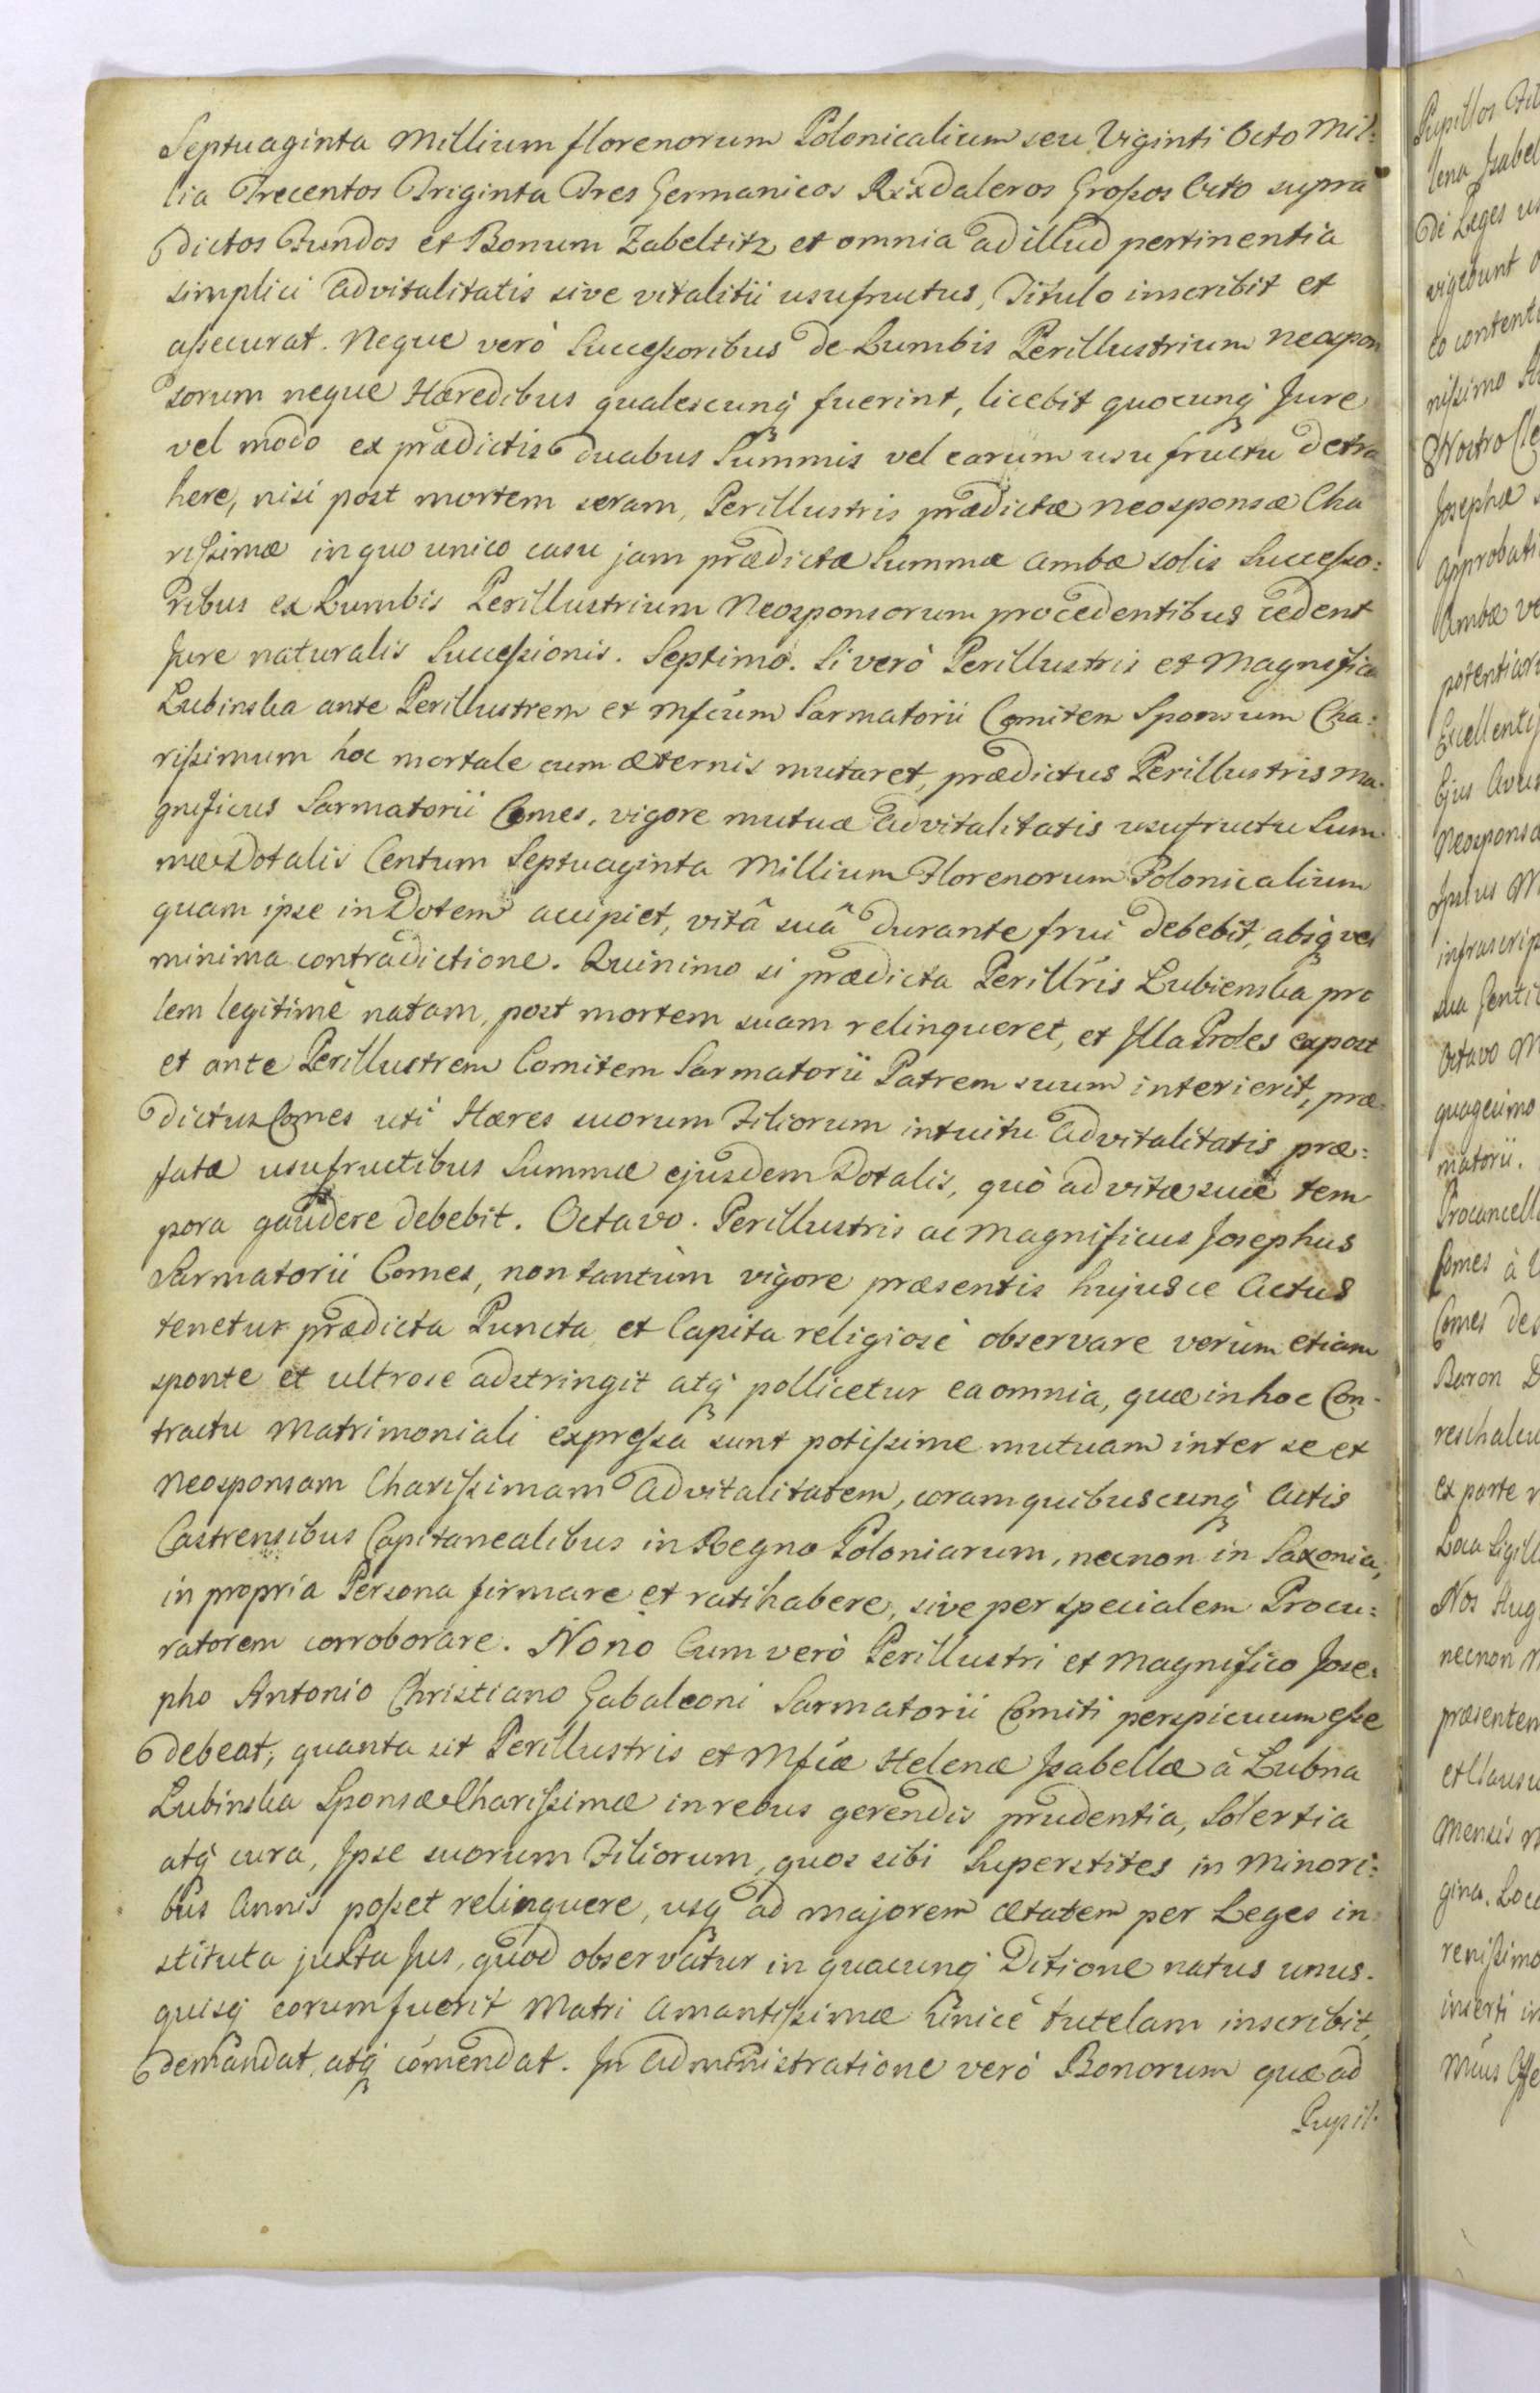 Septuaginta Millium florenorum Polonicalium seu Viginti Octo Mil:
lia Trecentos Triginta Tres Germanicos Rixdaleros Großos Octo supra
dictos Fundos et Bonum Zabeltitz et omnia ad illud pertinentia
simplici advitalitatis sive vitalitii usufructus, Titulo inscribit et
aßecurat. Neque verò Succeßoribus de Lumbis Perillustrium Neospon
sorum neque Hæredibus qualescunq́ fuerint, licebit quocunq́ Jure
vel modo ex prædictis duabus Summis vel earum usufructu detra
here, nisi post mortem seram, Perillustris prædictæ Neosponsæ Cha
rißimæ in quo unico casu jam prædictæ Summæ ambæ solis Succeßo:
ribus ex Lumbis Perillustrium Neosponsorum procedentibus cedent
Jure naturalis Succeßionis. Septimo. Si verò Perillustris et Magnifica
Lubinska ante Perillustrem et Mfcum Sarmatorii Comitem Sponsum Cha:
rißimum hoc mortale cum æternis mutaret, prædictus Perillustris Ma:
gnificus Sarmatorii Comes, vigore mutuæ advitalitatis usufructu Sum
mæ Dotalis Centum Septuaginta Millium Florenorum Polonicalium
quam ipse in Dotem accipiet, vitâ suâ durante frui debebit, absq́ vel
minima contradictione. Quinimo si prædicta Perillris Lubienska pro
lem legitimè natam, post mortem suam relinqueret, et Illa Proles expost
et ante Perillustrem Comitem Sarmatorii Patrem suum interierit, præ
dictus Comes uti Hæres suorum Filiorum intuitu advitalitatis præ:
fatæ usufructibus Summæ ejusdem Dotalis, quò ad vitæ suæ tem
pora gaudere debebit. Octavo. Perillustris ac Magnificus Josephus
Sarmatorii Comes, non tantùm vigore præsentis hujusce Actus
tenetur prædicta Puncta et Capita religiosè observare verùm etiam
sponte et ultrose adstringit atq́ pollicetur ea omnia, quæ in hoc Con-
tractu Matrimoniali expreßa sunt potißime mutuam inter se et
Neosponsam Charißimam advitalitatem, coram quibuscunq́ Actis
Castrensibus Capitanealibus in Regno Poloniarum, necnon in Saxonia,
in propria Persona firmare et ratihabere, sive per specialem Procu:
ratorem corroborare. Nono Cum verò Perillustri et Magnifico Jose:
pho Antonio Christiano Gabaleoni Sarmatorii Comiti perspicuum eße
debeat, quanta sit Perillustris et Mfcæ Helenæ Isabellæ à Lubna
Lubinska Sponsæ Charißimæ in rebus gerendis prudentia, Solertia
atq́ cura, Ipse suorum Filiorum, quos sibi Superstites in Minori:
bus Annis poßet relinquere, usq́ ad majorem ætatem per Leges in:
stituta juxta Jus, quod observatur in quacunq́ Ditione natus unus-
quisq́ eorum fuerit Matri Amantißimæ unicè tutelam inscribit,
demandat, atq́ comendat. In administratione verò Bonorum quæ ad
Pupil-